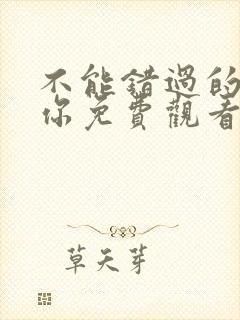 不能錯過的
你免費觀看
草天芽